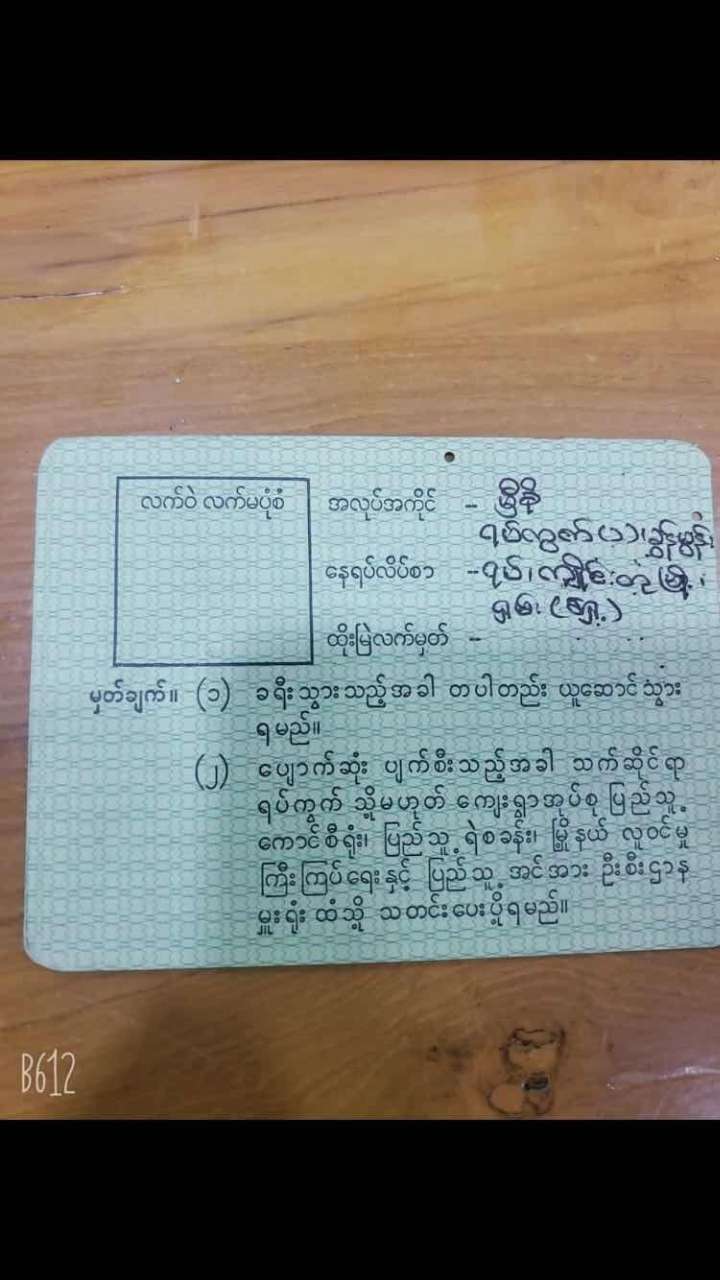 လက်ဝဲ လက်မပုံစံ
အလုပ်အကိုင် - မှီခို
ရပ်ကွက် (၁)၊ ခွန်မွန်း
နေရပ်လိပ်စာ - ရပ်၊ ကျိုင်းတုံမြို့၊
ရှမ်း (ရှေ့)
ထိုးမြဲလက်မှတ် -
မှတ်ချက်။ (၁) ခရီးသွားသည့်အခါ တပါတည်း ယူဆောင်သွား
ရမည်။
(၂) ပျောက်ဆုံး ပျက်စီးသည့်အခါ သက်ဆိုင်ရာ
ရပ်ကွက် သို့မဟုတ် ကျေးရွာအုပ်စု ပြည်သူ့
ကောင်စီရုံး၊ ပြည်သူ့ရဲစခန်း၊ မြို့နယ် လူဝင်မှု
ကြီးကြပ်ရေးနှင့် ပြည်သူ့အင်အား ဦးစီးဌာန
မှူးရုံး ထံသို့ သတင်းပေးပို့ရမည်။
B612